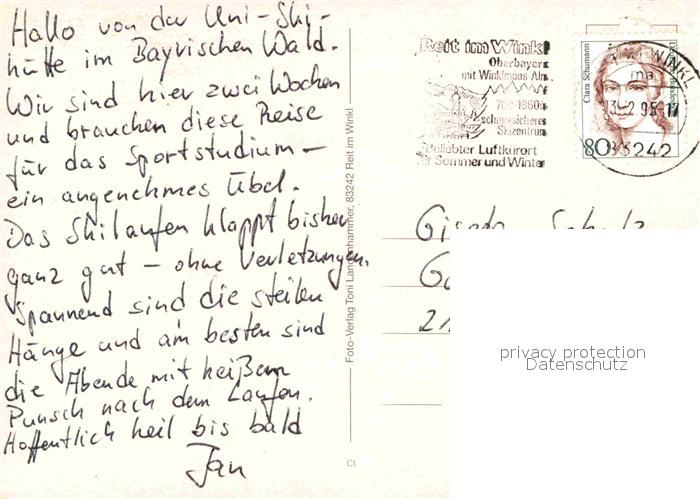 Hallo von der Uni-Ski-
hütte im Bayrischen Wald.
Wir sind hier zwei Wochen
und brauchen diese Reise
für das Sportstudium –
ein angenehmes Übel.
Das Skilaufen klappt bisher
ganz gut – ohne Verletzungen.
Spannend sind die steilen
Hänge und am besten sind
die Abende mit heißem
Punsch nach dem Laufen.
Hoffentlich heil bis bald
Jan
Foto-Verlag Toni Langenhammer, 83242 Reit im Winkl
Reit im Winkl
Oberbayern
mit Winklmoos Alm
700-1860m
schneesicheres
Skizentrum
Beliebter Luftkurort
für Sommer und Winter
Clara Schumann
80
83242
Gisela
privacy protection
Datenschutz